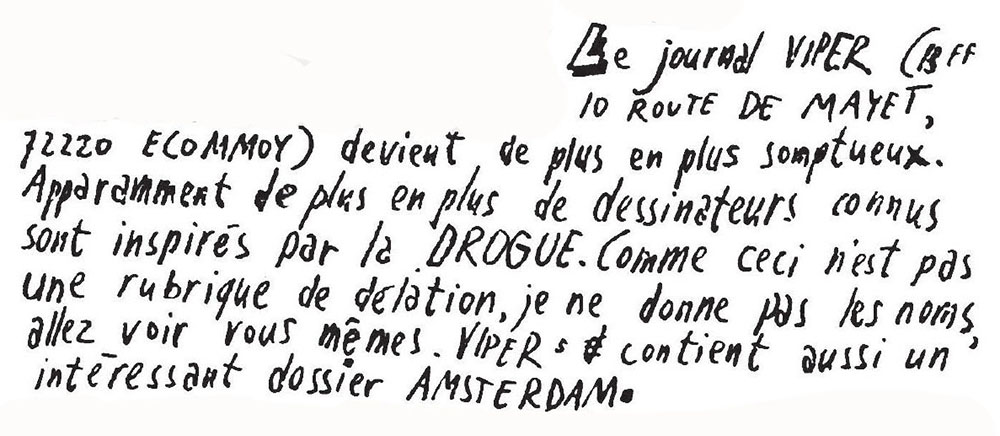 Le journal VIPER (15 FF
10 ROUTE DE MAYET,
72220 ECOMMOY) devient de plus en plus somptueux.
Apparamment de plus en plus de dessinateurs connus
sont inspirés par la DROGUE. Comme ceci n'est pas
une rubrique de délation, je ne donne pas les noms,
allez voir vous mêmes. VIPER contient aussi un
intéressant dossier AMSTERDAM.